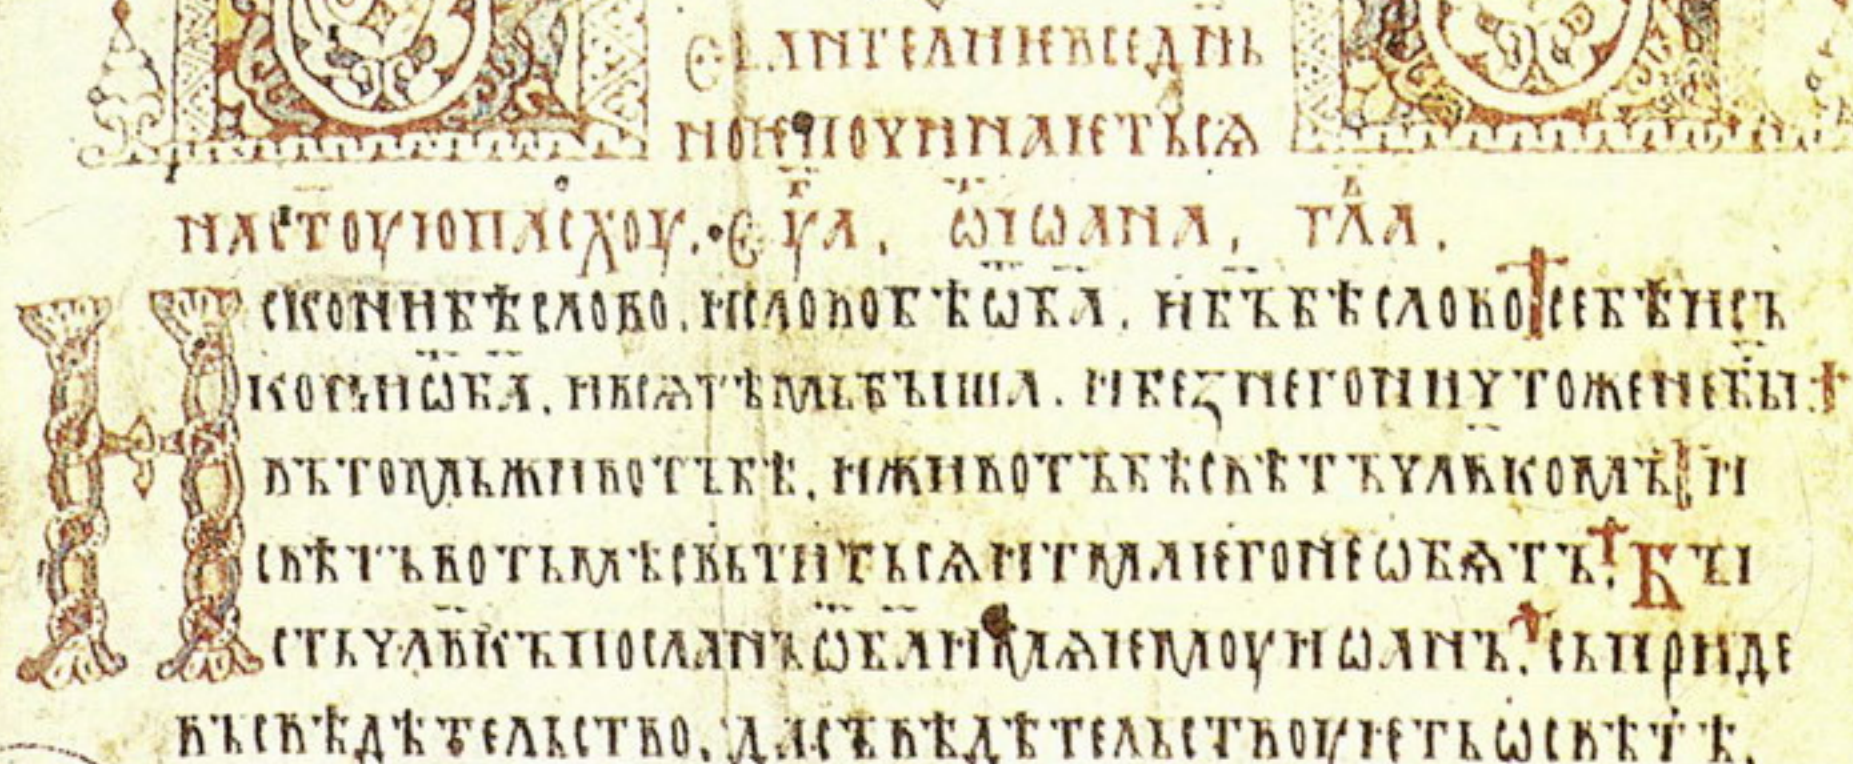 евангелиѥвседнь
ноѥ·поучинаѥтьсѧ
настоуюпасхоу. еѵ҃а. ѿиѡана. гл҃а.
Искониб҄ѣслово. ислово б҄ѣѡб҃а. ибъб҄ѣслово себ҄ѣисъ
кониѡб҃а. ивсѧтѣмьбъіша. ибезнегоничтоженебы
вътомьживотъбѣ. иживотъбѣсвѣтъчл҃вкомъ и
свѣтъвотьмѣсвьтитьсѧитмаѥгонеѡбѧтъ. Бъі
стьчл҃вкъпосланъѿб҃аимѧѥмоуиѡанъ. сьприде
въсвѣдѣтельство. дасъвѣдѣтельствоуѥтьѡсвѣтѣ.